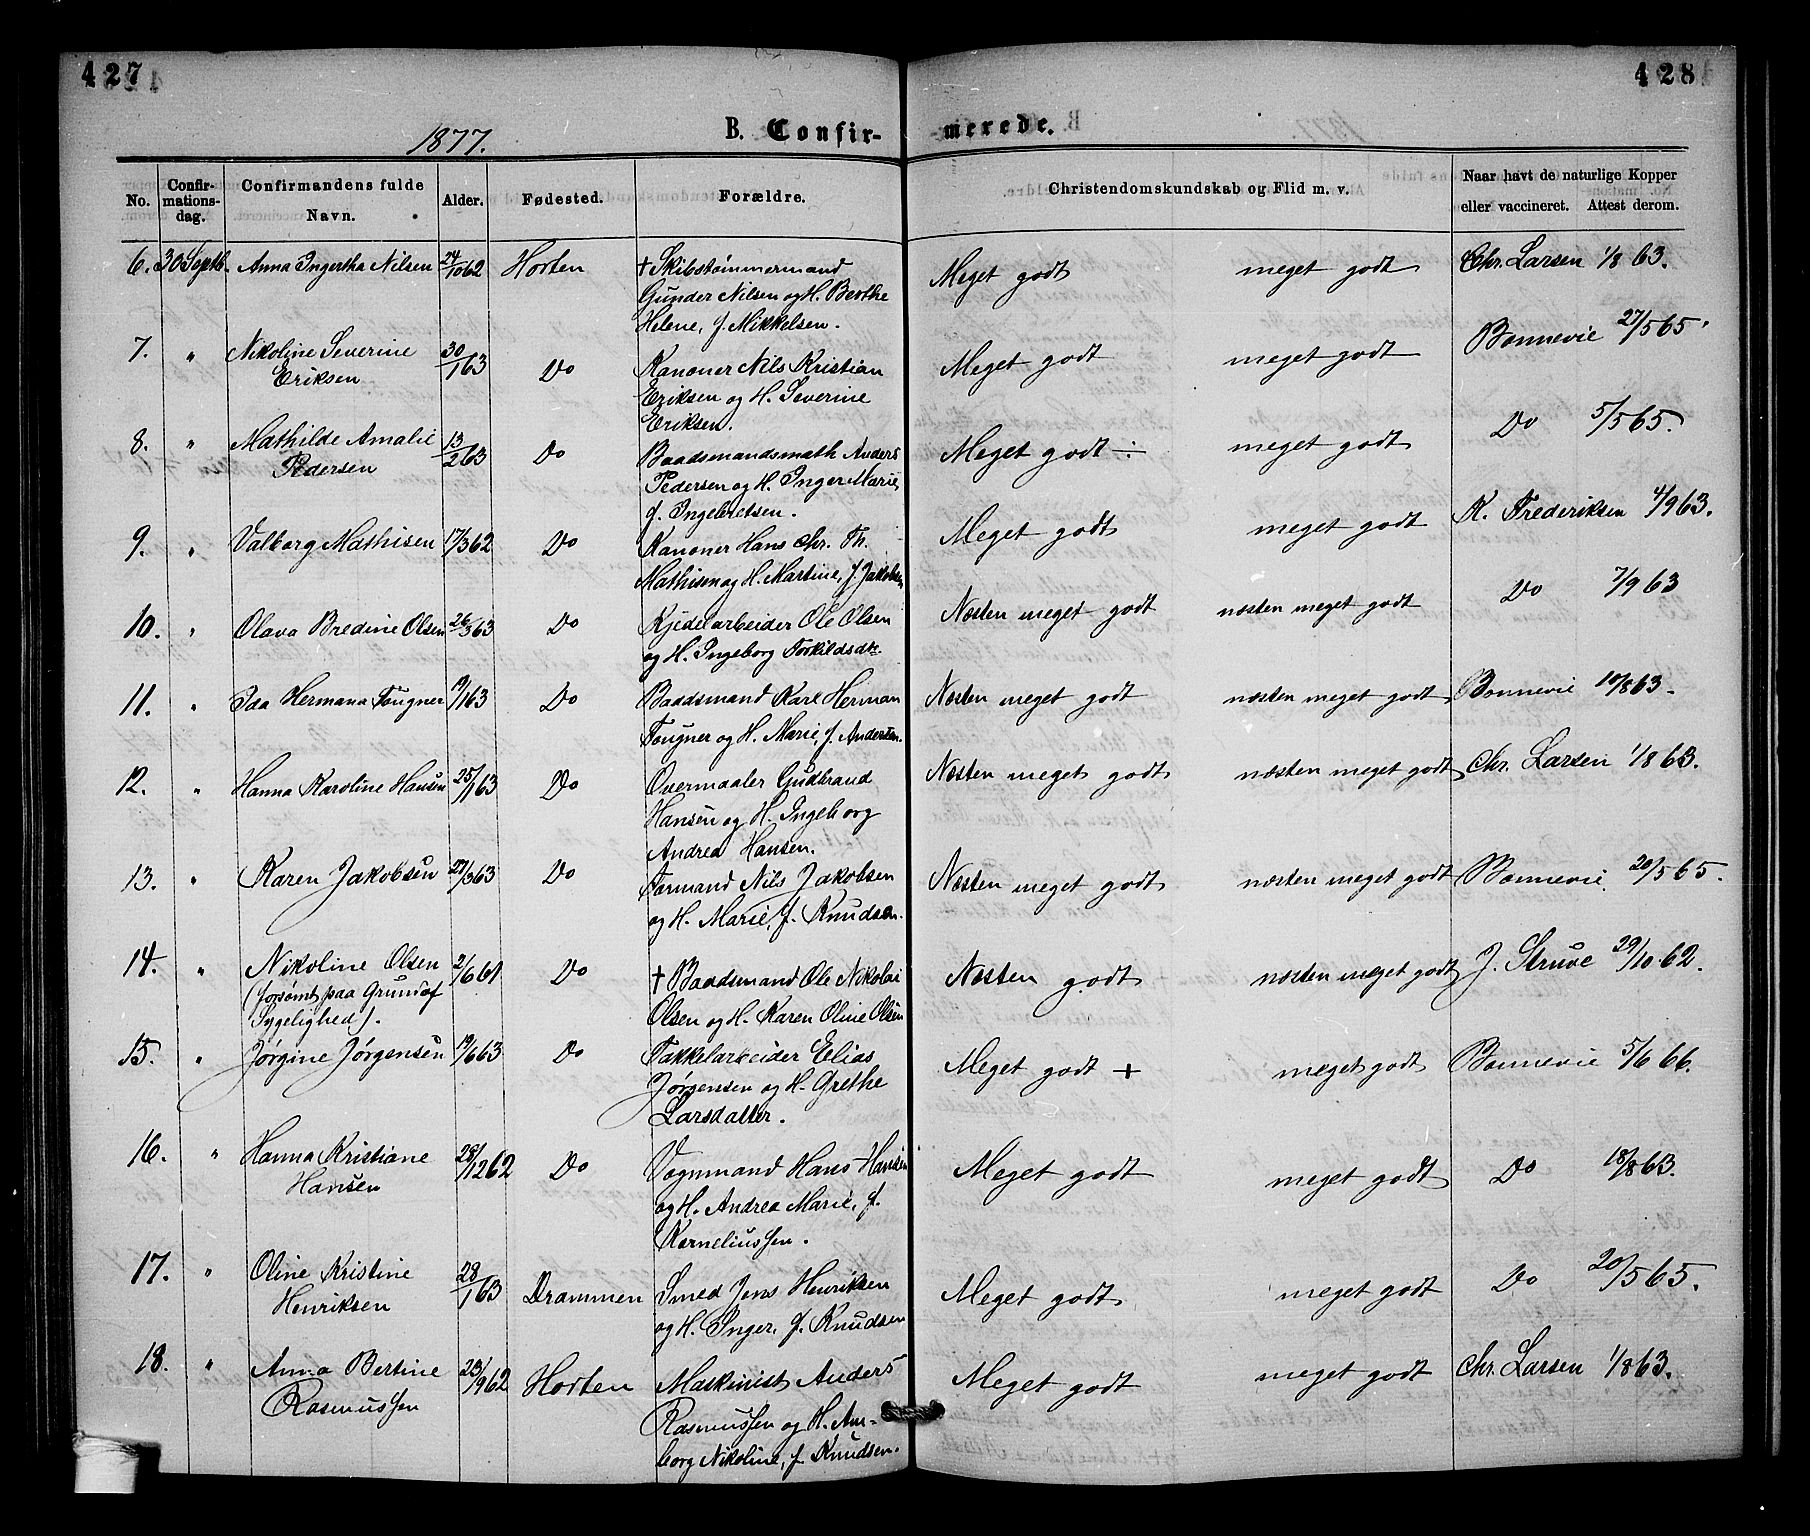 427
428
1877.
B. Confir-
merede.
No.
Confir-
mations-
dag.
Confirmandens fulde
Navn.
Alder.
Fødested.
Forældre.
Christendomskundskab og Flid m. v.
Naar havt de naturlige Kopper
eller vaccineret. Attest derom.
6. 30 Septb. Anna Ingertha Nilsen 24/10 62 Horten + Skibstømmermand Meget godt meget godt Chr. Larsen 1/8 63.
Gunder Nilsen og H. Berthe
Helene, f. Mikkelsen.
7. " Nikoline Severine 30/1 63 Do Kanoner Nils Kristian Meget godt meget godt Bonnevie 27/5 65.
Eriksen Eriksen og H. Severine
Eriksen.
8. " Mathilde Amalie 13/2 63 Do Baadsmandsmath Anders Meget godt ÷ meget godt Do 5/5 65.
Pedersen Pedersen og H. Inger Marie,
f. Ingebretsen.
9. " Valborg Mathisen 17/3 62 Do Kanoner Hans Chr. Th. Meget godt meget godt K. Frederiksen 4/9 63.
Mathisen og H. Martine, f. Jakobsen
10. " Olava Bredine Olsen 26/3 63 Do Kjedelarbeider Ole Olsen Næsten meget godt næsten meget godt Do 7/9 63
og H. Ingeborg Torkildsdtr.
11. " Ida Hermana Fougner 19/1 63 Do Baadsmand Karl Herman Næsten meget godt næsten meget godt Bonnevie 10/8 63.
Fougner og H. Marie, f. Andersen.
12. " Hanna Karoline Hansen 25/1 63 Do Overmaaler Gudbrand Næsten meget godt næsten meget godt Chr. Larsen 1/8 63.
Hansen og H. Ingeborg
Andrea Hansen.
13. " Karen Jakobsen 27/3 63 Do Formand Nils Jakobsen Næsten meget godt næsten meget godt Bonnevie 20/5 65.
og H. Marie, f. Knudsen.
14. " Nikoline Olsen 2/6 61 Do + Baadsmand Ole Nikolai Næsten godt næsten meget godt J. Struve 29/10 62.
(forsømt paa Grund af Olsen og H. Karen Oline Olsen
Sygelighed).
15. " Jørgine Jørgensen 19/6 63 Do Takkelarbeider Elias Meget godt + meget godt Bonnevie 5/6 66.
Jørgensen og H. Grethe
Larsdatter.
16. " Hanna Kristiane 28/12 62 Do Vognmand Hans Hansen Meget godt meget godt Do 18/8 63.
Hansen og H. Andrea Marie, f.
Korneliussen.
17. " Oline Kristine 28/1 63 Drammen Smed Jens Henriksen Meget godt meget godt Do 20/5 65.
Henriksen og H. Inger, f. Knudsen
18. " Anna Bertine 23/9 62 Horten Maskinist Anders Meget godt meget godt Chr. Larsen 1/8 63.
Rasmussen Rasmussen og H. Am-
borg Nikoline, f. Knudsen.